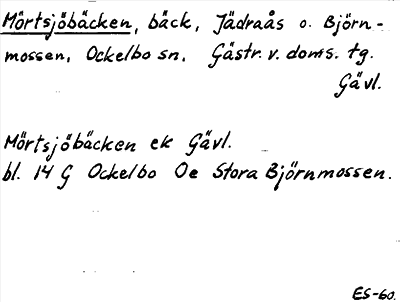 Mörtsjöbäcken, bäck, Jädraås o. Björn-
mossen, Ockelbo sn, Gästr. v. doms. tg.
Gävl.
Mörtsjöbäcken ek Gävl.
bl. 14 G Ockelbo Oe Stora Björnmossen.
ES-60.